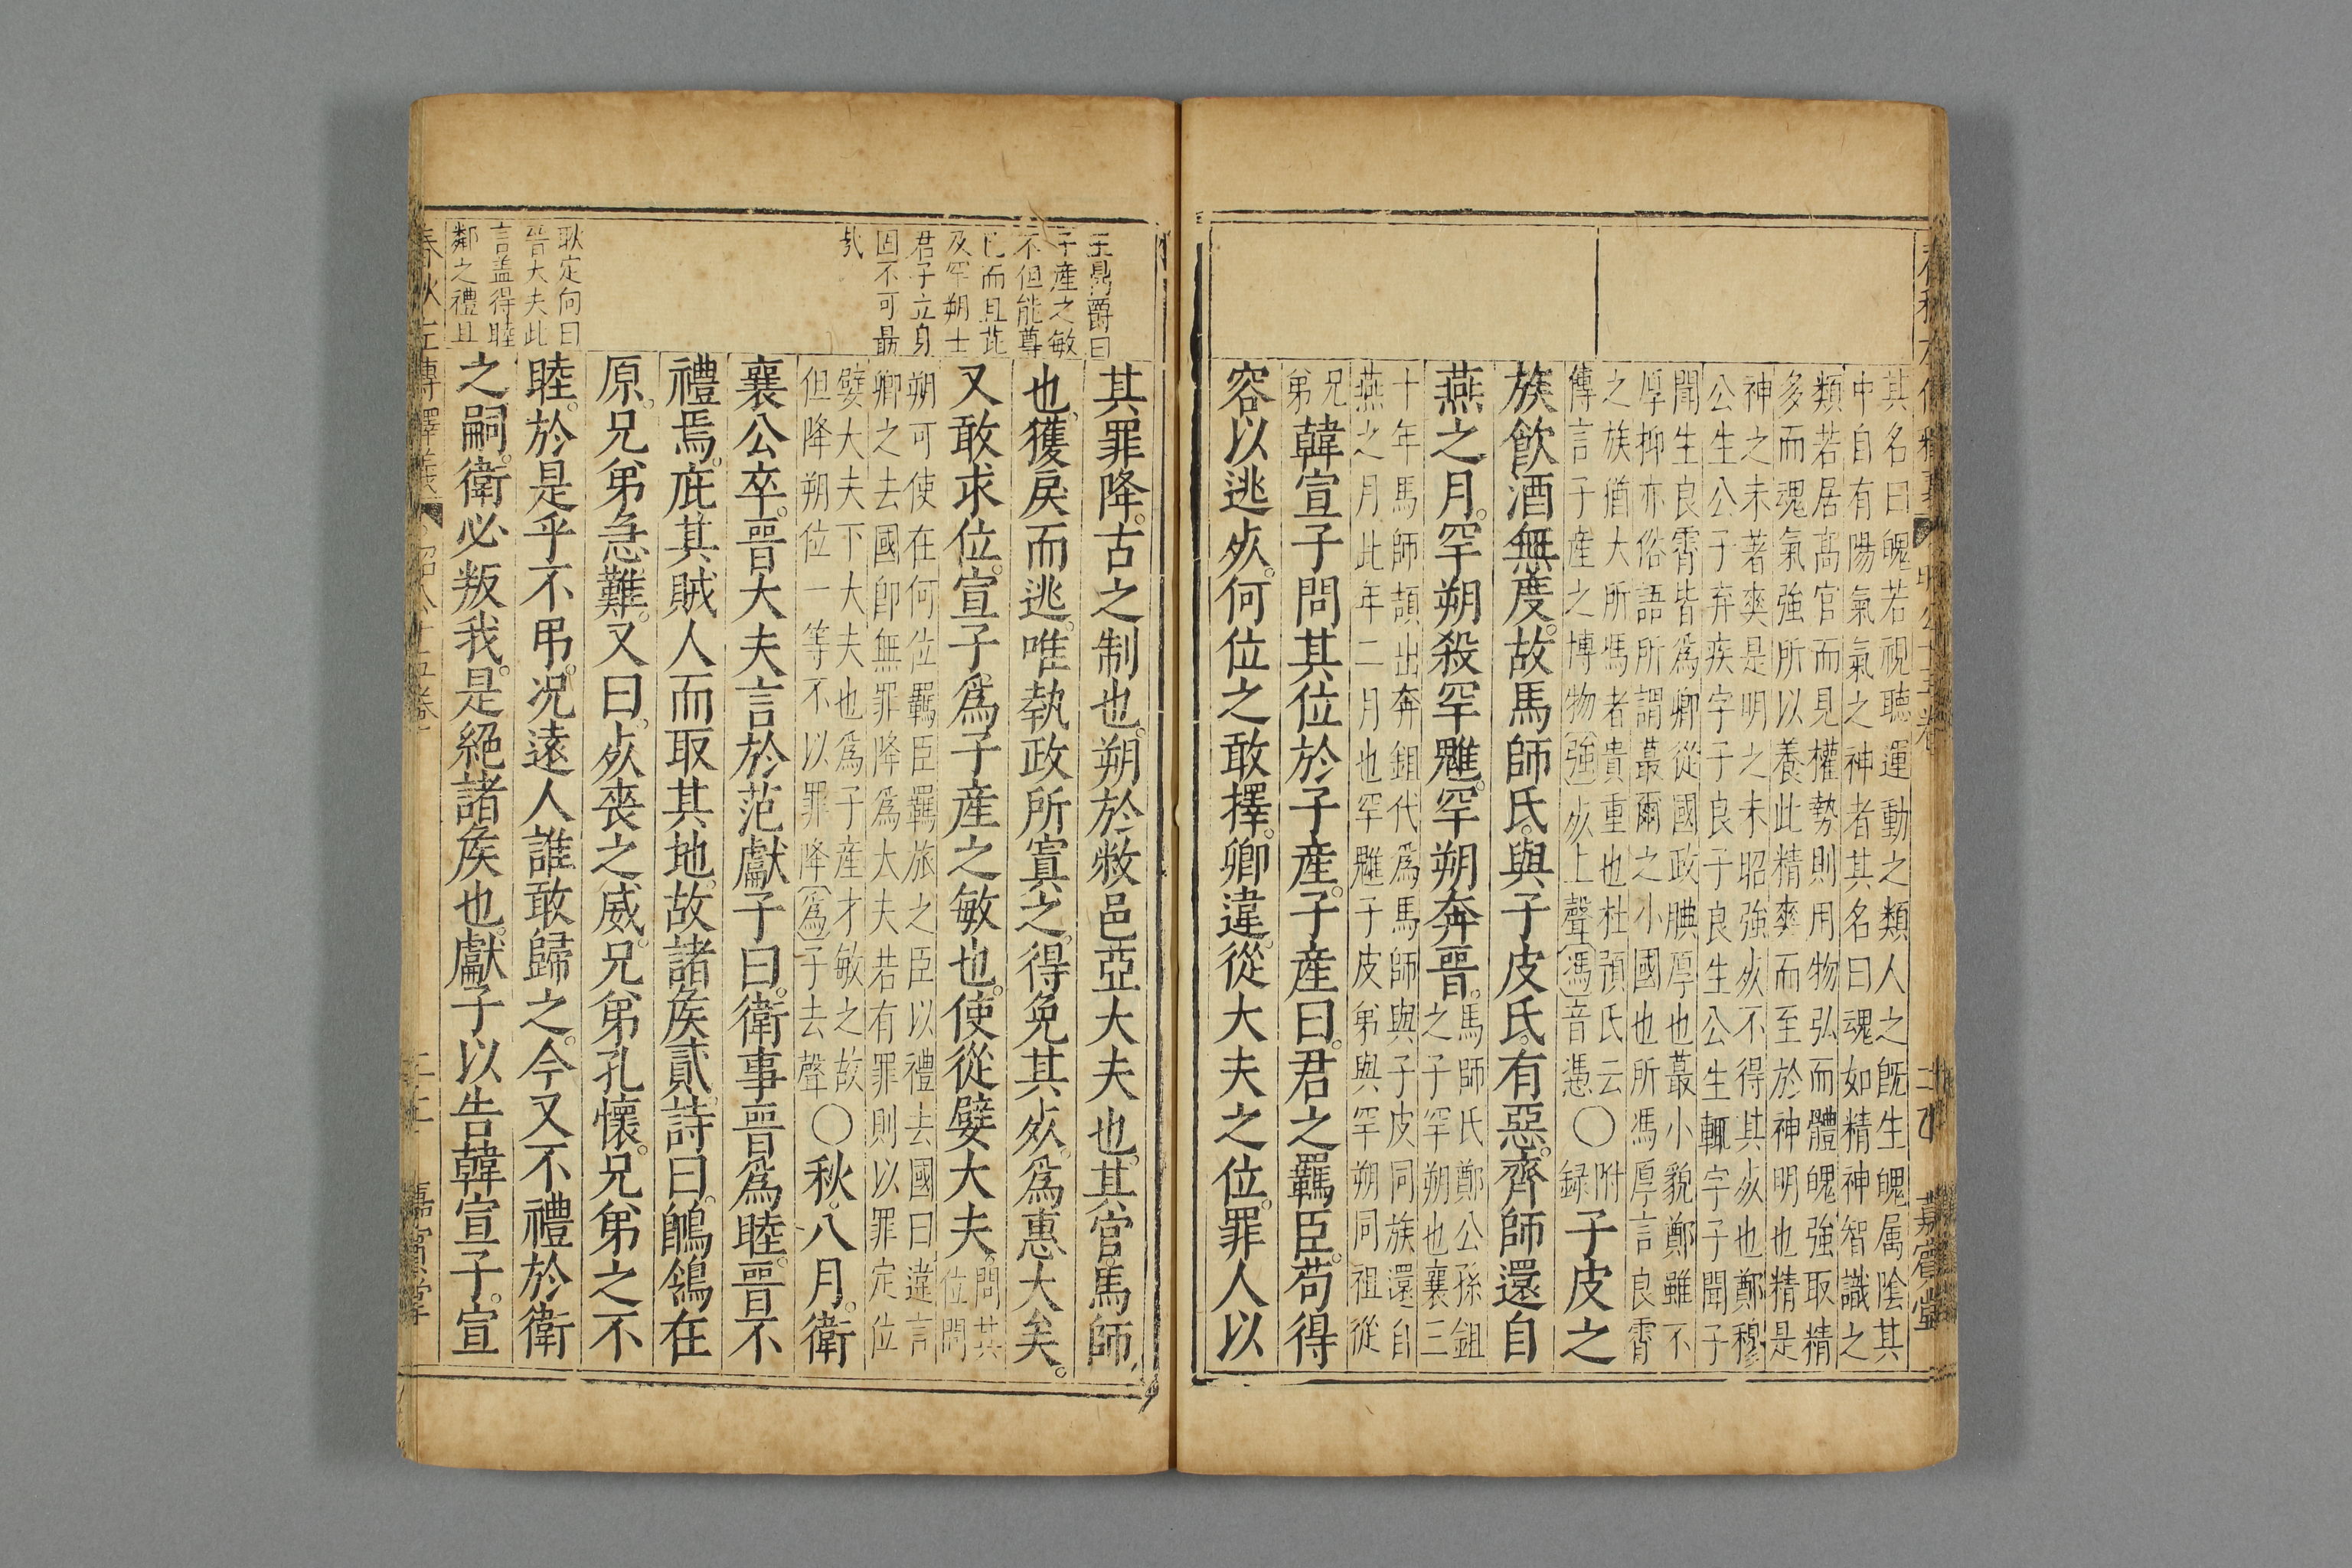 其名曰魄若視聽運動之類人之旣生魄属陰其
中自有陽氣氣之神者其名曰魂如精神智識之
類若居高官而見權勢則用物弘而體魄強取精
多而魂氣強所以養此精爽而至於神明也精是
神之未著爽是明之未昭強死不得其死也鄭穆
公生公子弃疾字子良子良生公生輒字子聞子
聞生良霄皆為卿從國政腆厚也蕞小貌鄭雖不
厚抑亦俗語所謂蕞爾之小國也所馮厚言良霄
之族循大所馮者貴重也杜預氏云
傳言子產之博物強死上聲馮音憑〇附録
子皮之
族飲酒無度。故馬師氏與子皮氏有惡。齊師還自
燕之月。罕朔殺罕魋。罕朔奔晉。
馬師氏鄭公孫鉏
之子罕朔也襄三
十年馬師頡出奔鉏代為馬師與子皮同族還自
燕之月此年二月也罕魋子皮弟與罕朔同祖從
兄
弟
韓宣子問其位於子產。子產曰。君之羈臣。苟得
容以逃死。何位之敢擇。卿違。從大夫之位。罪人以
春秋左傳釋義
昭公十五卷
嘉賓堂
王鼎爵曰
子產之敏
不但能尊
己而且芘
及罕朔士
君子立身
固不可最
哉
其罪降。古之制也。朔於敝邑亞大夫也。其官馬師
也。獲戾而逃。唯執政所寘之。得免其死。為惠大矣。
又敢求位。宣子為子產之敏也。使從嬖大夫。
問其
位問
朔可使在何位羈臣羈旅之臣以禮去國曰違言
卿之去國卽無罪降為大夫若有罪則以罪定位
嬖大夫下大夫也為子產才敏之故
但降朔位一等不以罪降為子去聲〇
秋。八月。衛
襄公卒。晉大夫言於范獻子曰。衛事晉為睦。晉不
禮焉。庇其賊人而取其地。故諸矦貳。詩曰。鶺鴒在
原。兄弟急難。又曰。死喪之威。兄弟孔懷。兄弟之不
耿定向曰
晉大夫此
言盖得睦
鄰之禮且
睦。於是乎不弔。況遠人誰敢歸之。今又不禮於衛
之嗣。衛必叛我。是絕諸矦也。獻子以告韓宣子。宣
春秋左傳釋義
昭公十五卷
嘉賓堂